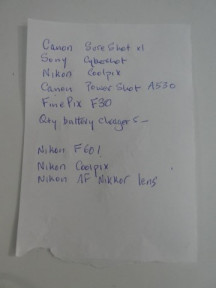 Canon SureShot x1
Sony Cybershot
Nikon Coolpix
Canon PowerShot A530
FinePix F30
Qty battery chargers -
Nikon F601
Nikon Coolpix
Nikon AF Nikkor lens